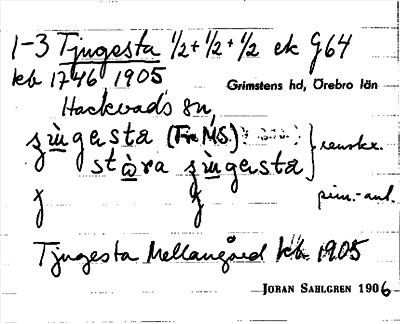 1-3 Tjugesta 1/2 + 1/2 + 1/2 ek G64
kb 1746 1905
Grimstens hd, Örebro län
Hackvads sn,
ʒùgesta (Fr M.S.) renskr.
stàra ʒùgesta
ʒ ʒ prim.-ant.
Tjugesta Mellangård kb 1905
JÖRAN SAHLGREN 1906